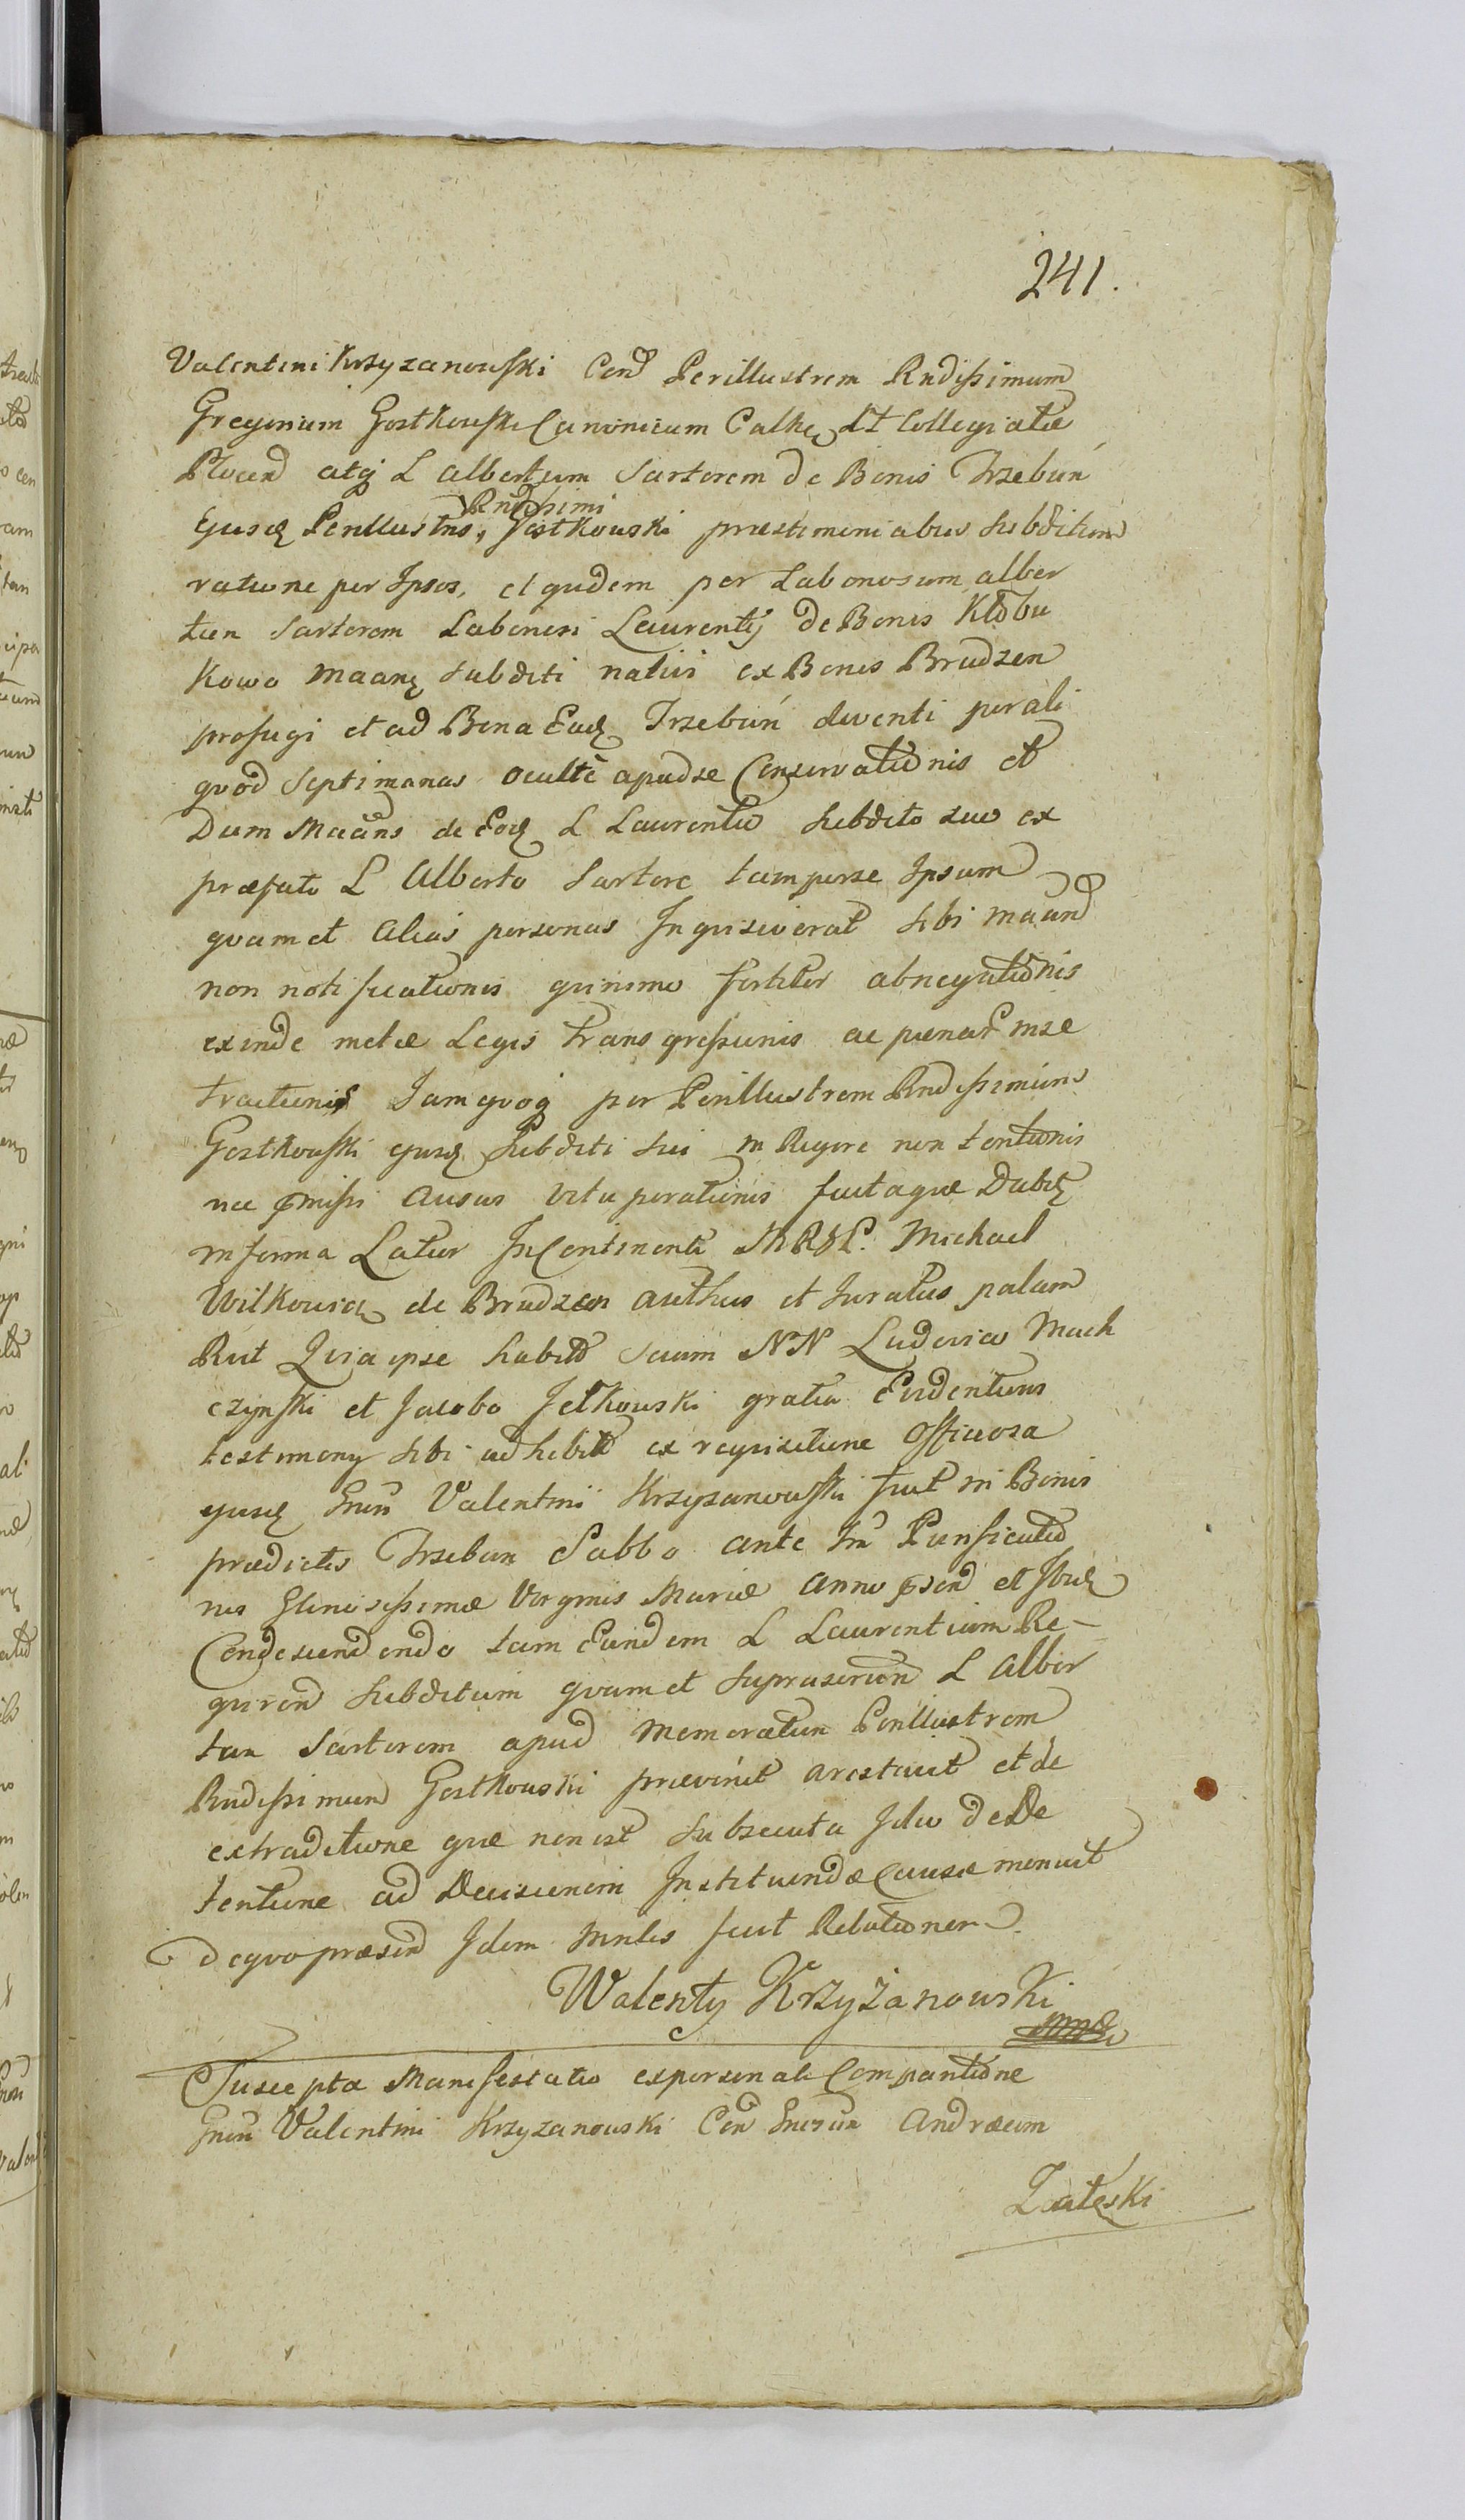 241.
Valentini Krzyzanowski Con͠d Perillustrem Rndissimum
Gregorium Gostkowski Canonicum Cathe Et Collegiatæ
Plocen͠ atq L Albertum Sartorem de Bonis Trzebuń
Rndissimi
Ejusd Perillustris, Gostkouski præstimoniabus Subditum
ratione per Ipsos, et quidem per Laboriosum alber
tum Sartorem Laboriosi Laurentij de Bonis Kłobu
kowo subditi nativi ex Bonis Brudzen
profugi et ad Bona Ead Trzebuń deventi per ali
quod Septimanas oculte apud se Conservationis et
Dum Maans de Eod L Laurentio subdito suo ex
præfato L Alberto Sartore tam per se Ipsum
quam et alias personas Inquisiverat sibi
non notificationis quinimo fortiter abnegationis
exinde metæ Legis transgressionis ac pœnar
tractionis Jam quoq per Perillustrem Rndissimum
Gostkowski ejusd Subditi sui in Rigore non tentionis
nec pmissi ausus vituperationis factaque
in forma Latior In Continenti Michael
Wilkowicz de Brudzen authus et Juratus palam
Rit Quia ipse habita secum NN Ludovico Mach
czynski et Jacobo Jełkouski gratia Evidentioris
testimony sibi adhibita ex requisitione Officiosa
ejusd Gnri Valentini Krzyzanowski fuit in Bonis
prædictis Trzebun Sabbo ante Purificatio
nis Gloriosissimæ Virginis Mariæ anno et Ibid
Condescendendo tam Eundem L Laurentium Re-
quiren͠ Subditum quam et suprascrien L Alber
tum Sartorem apud memoratum Perillustrem
Rndissimum Gostkouski prævenit arestavit et de
extraditione quæ non est Subsecuta Ideo de De
tentione ad Decisionem Instituendæ Causæ monuit
de quo præsen͠ Idem Mnlis fecit Relationem
Walenty Krzyżanowski
Suscepta Manifestatio ex personali Comparitione
Gnri Valentini Krzyzanouski Con͠ Gnrosum Andræam
Załęski